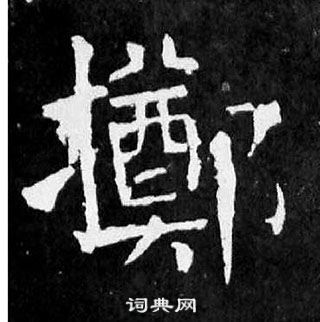 擲
词典网